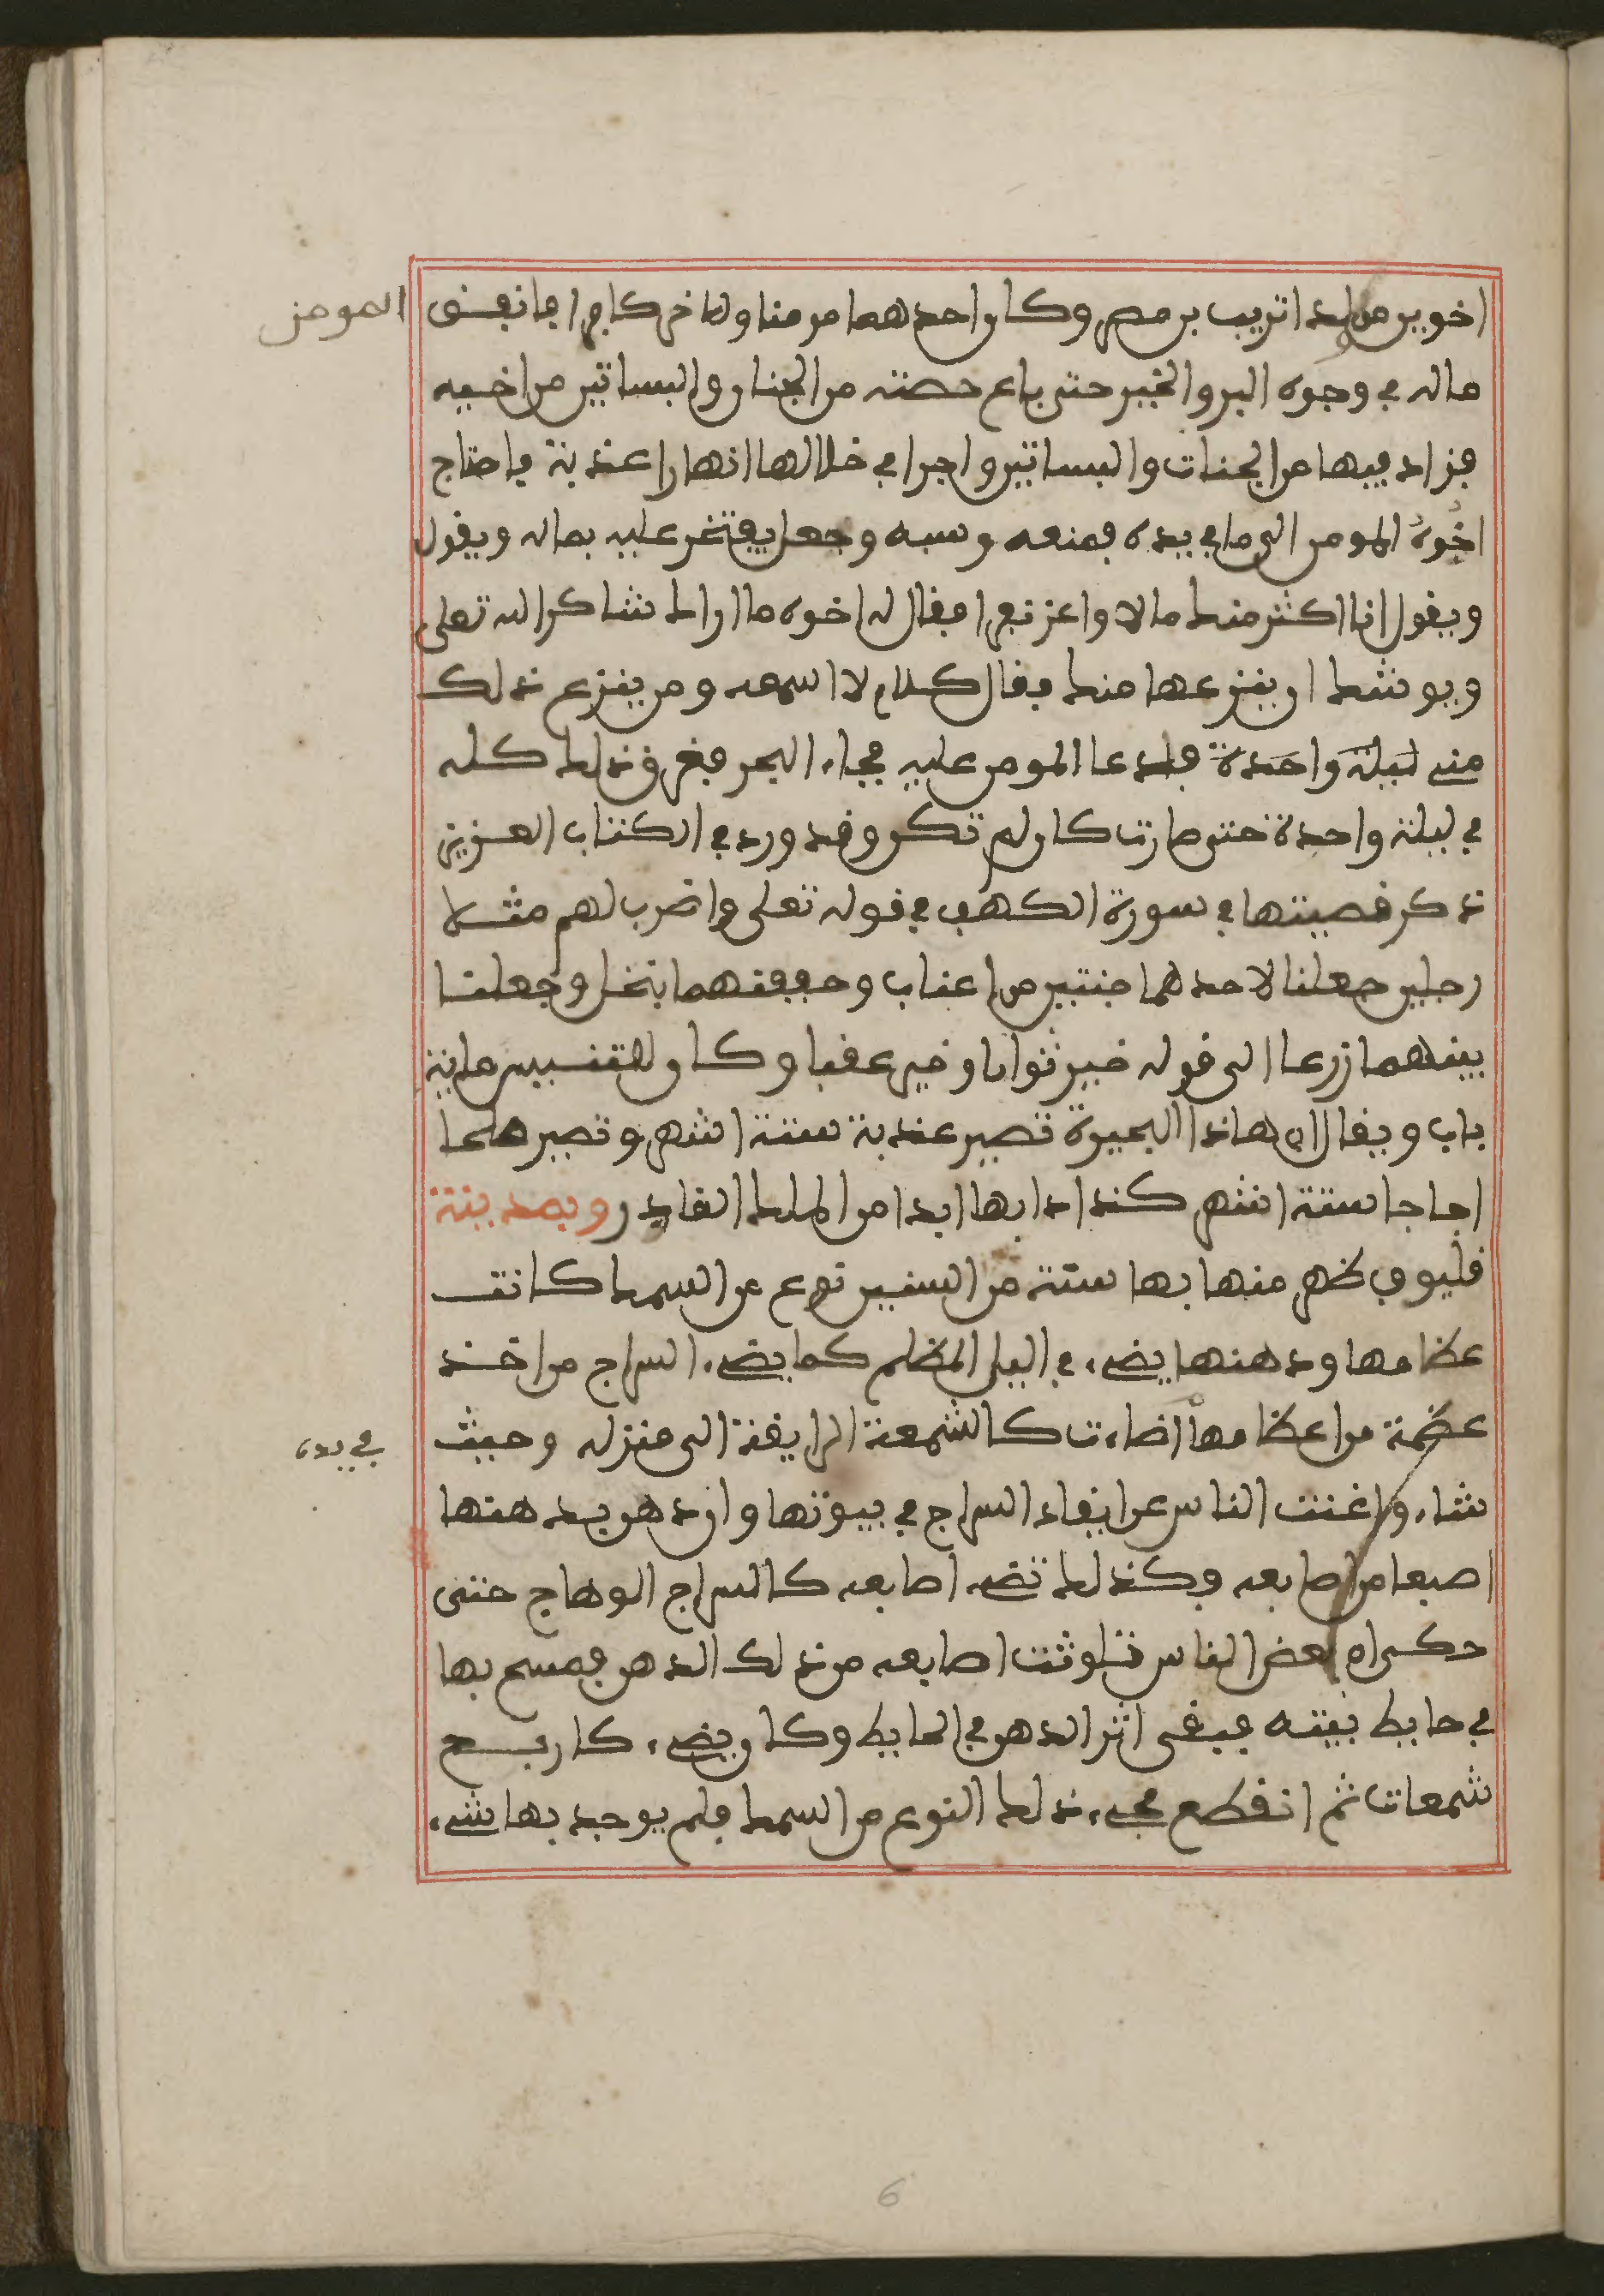 اخوين من ولد اتريب بن مصر وكان احدهما مومنا والاخر كافرا فانفق المومن
ماله في وجوه البر والخير حتى باع حصته من الجنان والبساتين من اخيه
فزاد فيها من الجنات والبساتين واجرا في خلالها انهارا عذبة فاحتاج
اخُوهُ المومن الى ما في يده فمنعه وسبه وجعل يفتخر عليه بماله ويقول
ويقول انا اكثر منك مالا واعز نفرا فقال له اخوه ما اراك شاكرا لله تعلى
ويوشك ان ينزعها منك فقال كلام لا اسمعه ومن ينزع ذلك
مني لَيْلَة واحَدَة فلدعا المومن عليه فجاء البحر فغرق ذلك كله
في ليلة واحدة حتى صارت كان لم تكن وقد ورد في الكتاب العزيز
ذكر قصيتها في سورة الكهف في قوله تعلى واضرب لهم مثلا
رجلين جعلنا لاحدهما جنتين من اعناب وحففنهما بنخل وجعلنا
بينهما زرعا الى قوله خير ثوابا وخير عقبا وكان لتنيس ماية
باب ويقال ان هاذا البحيرة تصير عذبة ستة اشهر وتصير ملحا
اجاجا ستة اشهر كذا دابها ابدا من الملك القادر وبمدينة
قليوب ظهر منها بها ستة من السنين نوع من السمك كانت
عظامها ودهنها يضيء في اليل المظلم كما يضيء السراج من اخذ
عظمة من عظامها في يده اضاءت كالشمعة الرايقة الى منزله وحيث
شاء واغنت الناس عن ايقاد السراج في بيوتها وان دهن بدهنها
اصبعا من اصابعه وكذلك تضيء اصابعه كالسراج الوهاج حتى
حكى ان بعض الناس تلوثت اصابعه من ذلك الدهن فمسح بها
في حايط بيته فبقى اثر الدهن في الحايط وكان يضيء كاربع
شمعات ثم انقطع مجيء ذلك النوع من السمك فلم يوجد بها شيء
6